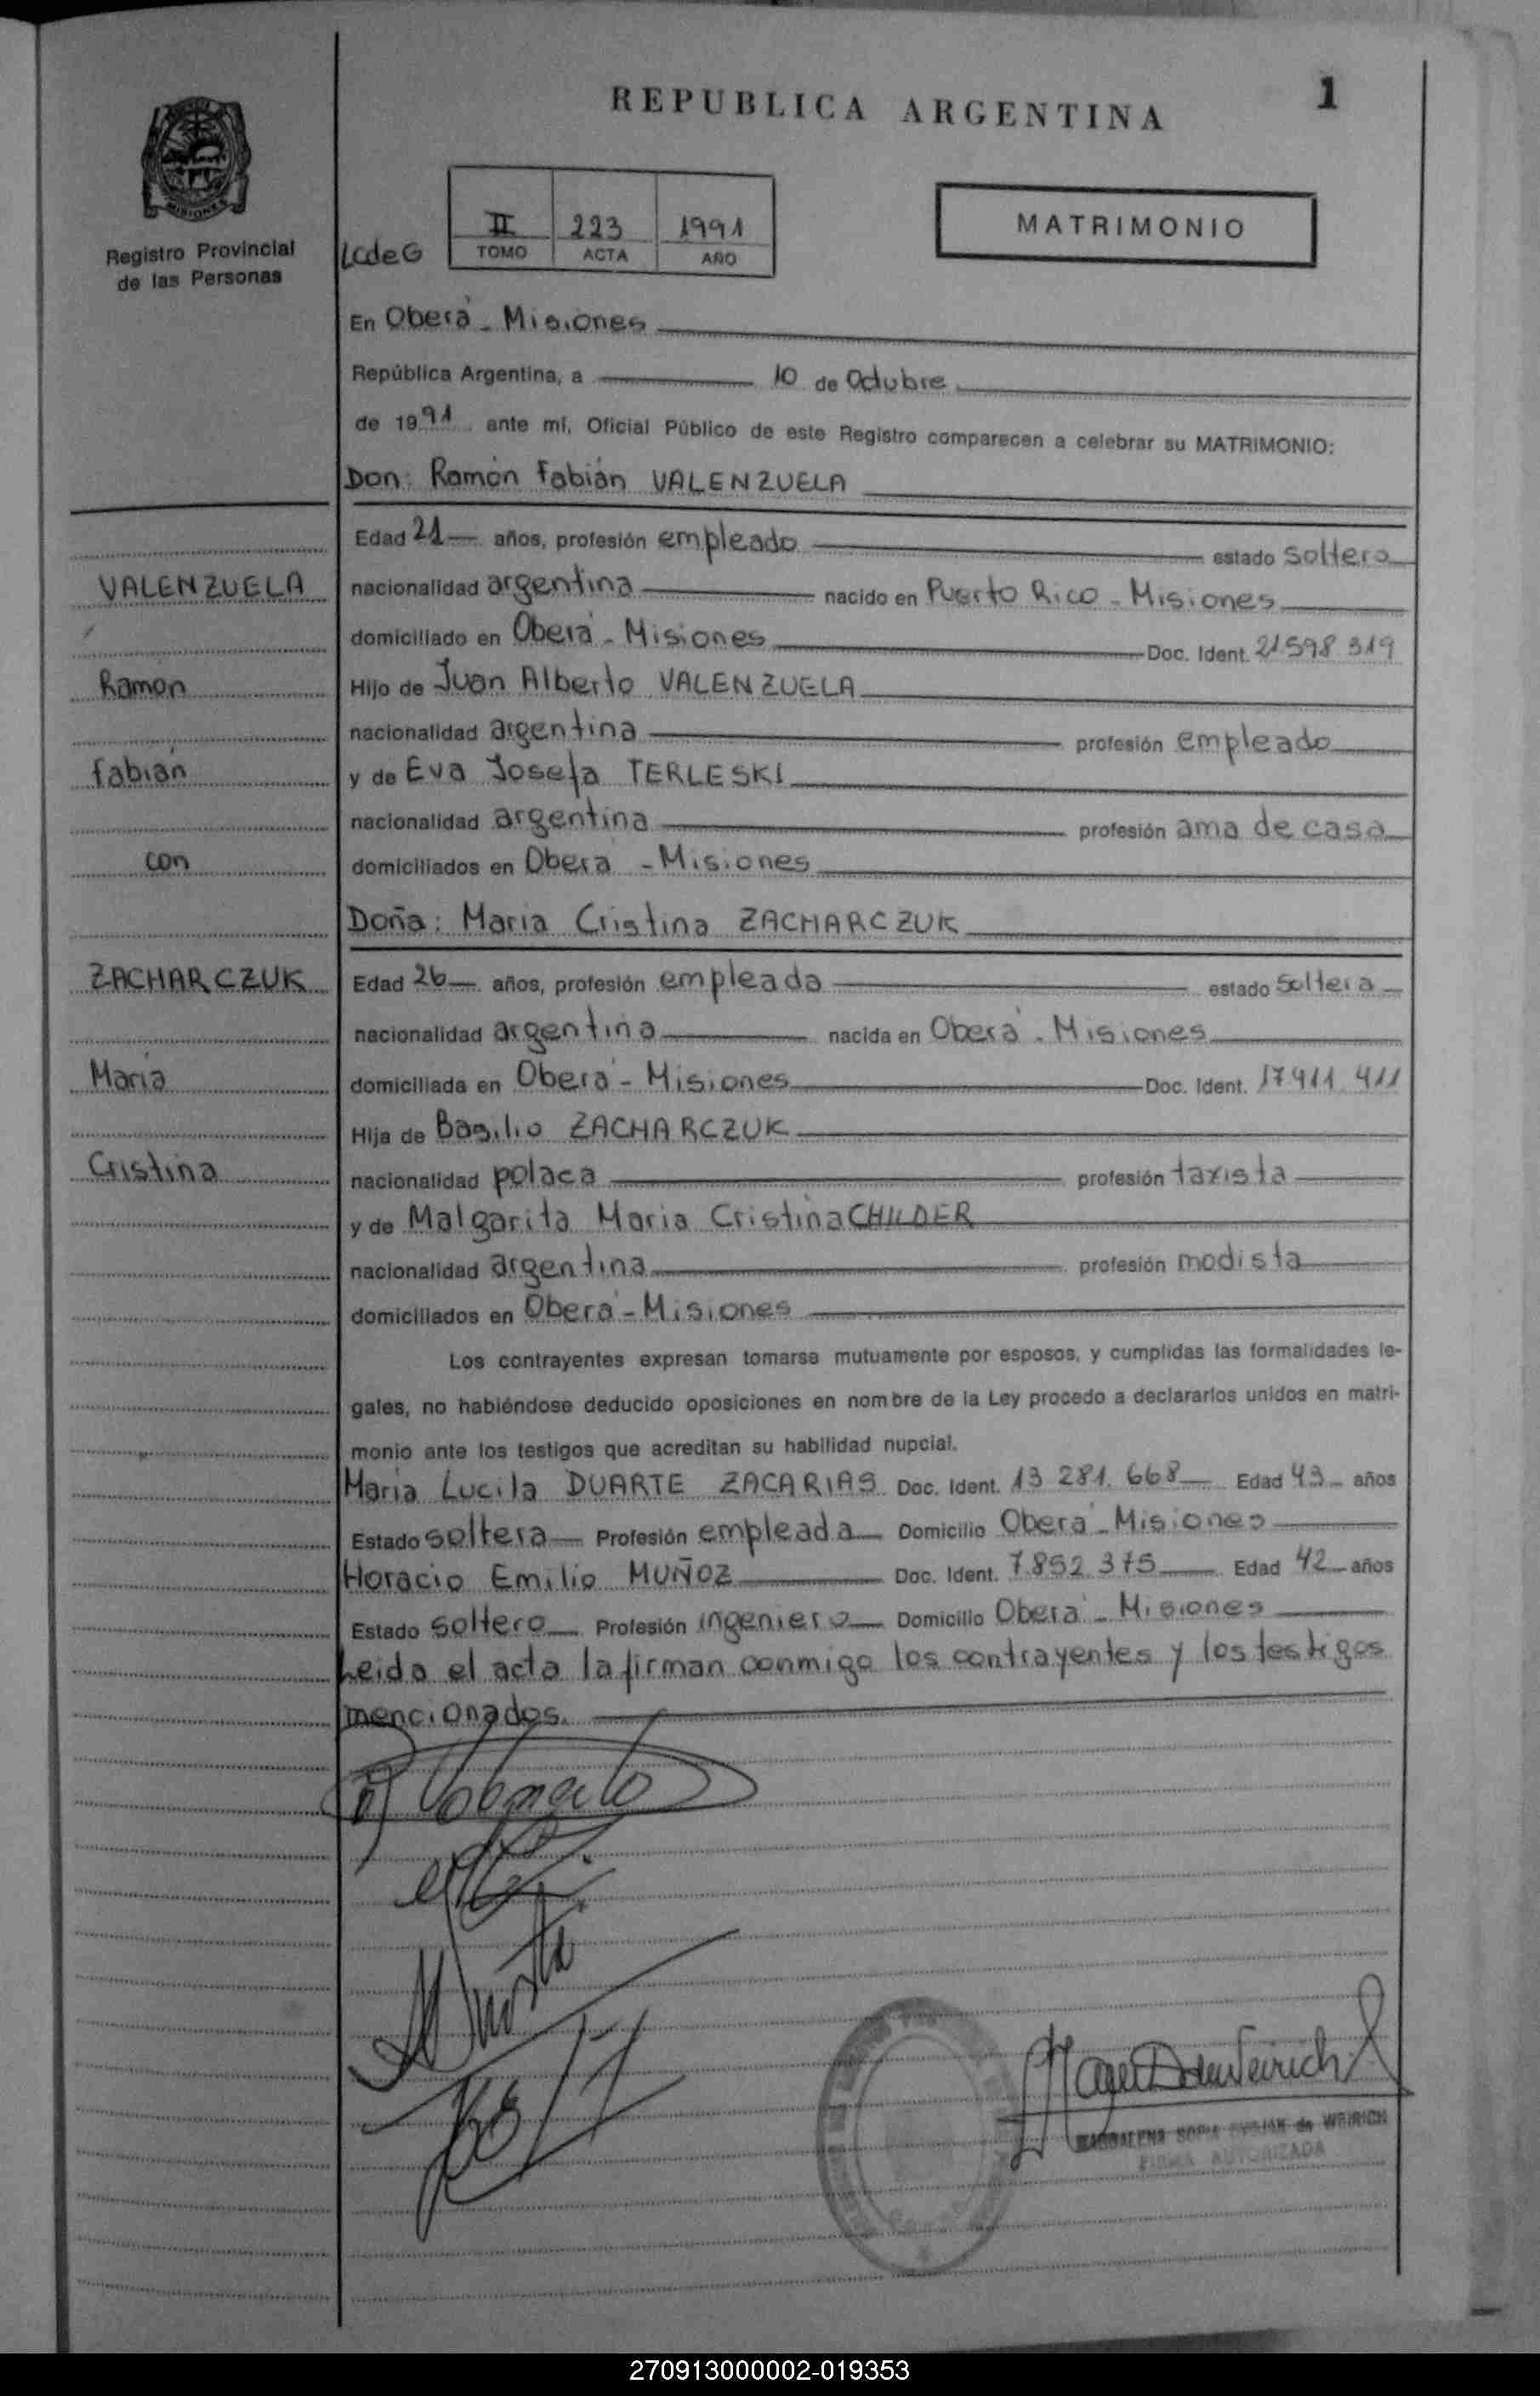 REPUBLICA ARGENTINA
1
MISIONES
Registro Provincial
de las Personas
LCdeG
II 223 1991
TOMO ACTA AÑO
MATRIMONIO
En Oberá - Misiones
República Argentina, a 10 de Octubre
de 1991 ante mí, Oficial Público de este Registro comparecen a celebrar su MATRIMONIO:
Don: Ramón Fabián VALENZUELA
Edad 21 años, profesión empleado estado soltero
VALENZUELA
nacionalidad argentina nacido en Puerto Rico - Misiones
domiciliado en Oberá - Misiones Doc. Ident. 21.598.319
Ramón
Hijo de Juan Alberto VALENZUELA
nacionalidad argentina profesión empleado
Fabián
y de Eva Josefa TERLESKI
nacionalidad argentina profesión ama de casa
con
domiciliados en Oberá - Misiones
Doña: Maria Cristina ZACHARCZUK
ZACHARCZUK
Edad 26 años, profesión empleada estado soltera
nacionalidad argentina nacida en Oberá - Misiones
Maria
domiciliada en Oberá - Misiones Doc. Ident. 17.911.911
Hija de Basilio ZACHARCZUK
Cristina
nacionalidad polaca profesión taxista
y de Malgarita Maria Cristina CHILDER
nacionalidad argentina profesión modista
domiciliados en Oberá - Misiones
Los contrayentes expresan tomarse mutuamente por esposos, y cumplidas las formalidades le-
gales, no habiéndose deducido oposiciones en nombre de la Ley procedo a declararlos unidos en matri-
monio ante los testigos que acreditan su habilidad nupcial.
Maria Lucila DUARTE ZACARIAS Doc. Ident. 13.281.668 Edad 43 años
Estado soltera Profesión empleada Domicilio Oberá - Misiones
Horacio Emilio MUÑOZ Doc. Ident. 7.852.375 Edad 42 años
Estado soltero Profesión ingeniero Domicilio Oberá - Misiones
Leida el acta la firman conmigo los contrayentes y los testigos
mencionados.
MAGDALENA SOFIA de WEIRICH
FIRMA AUTORIZADA
270913000002-019353